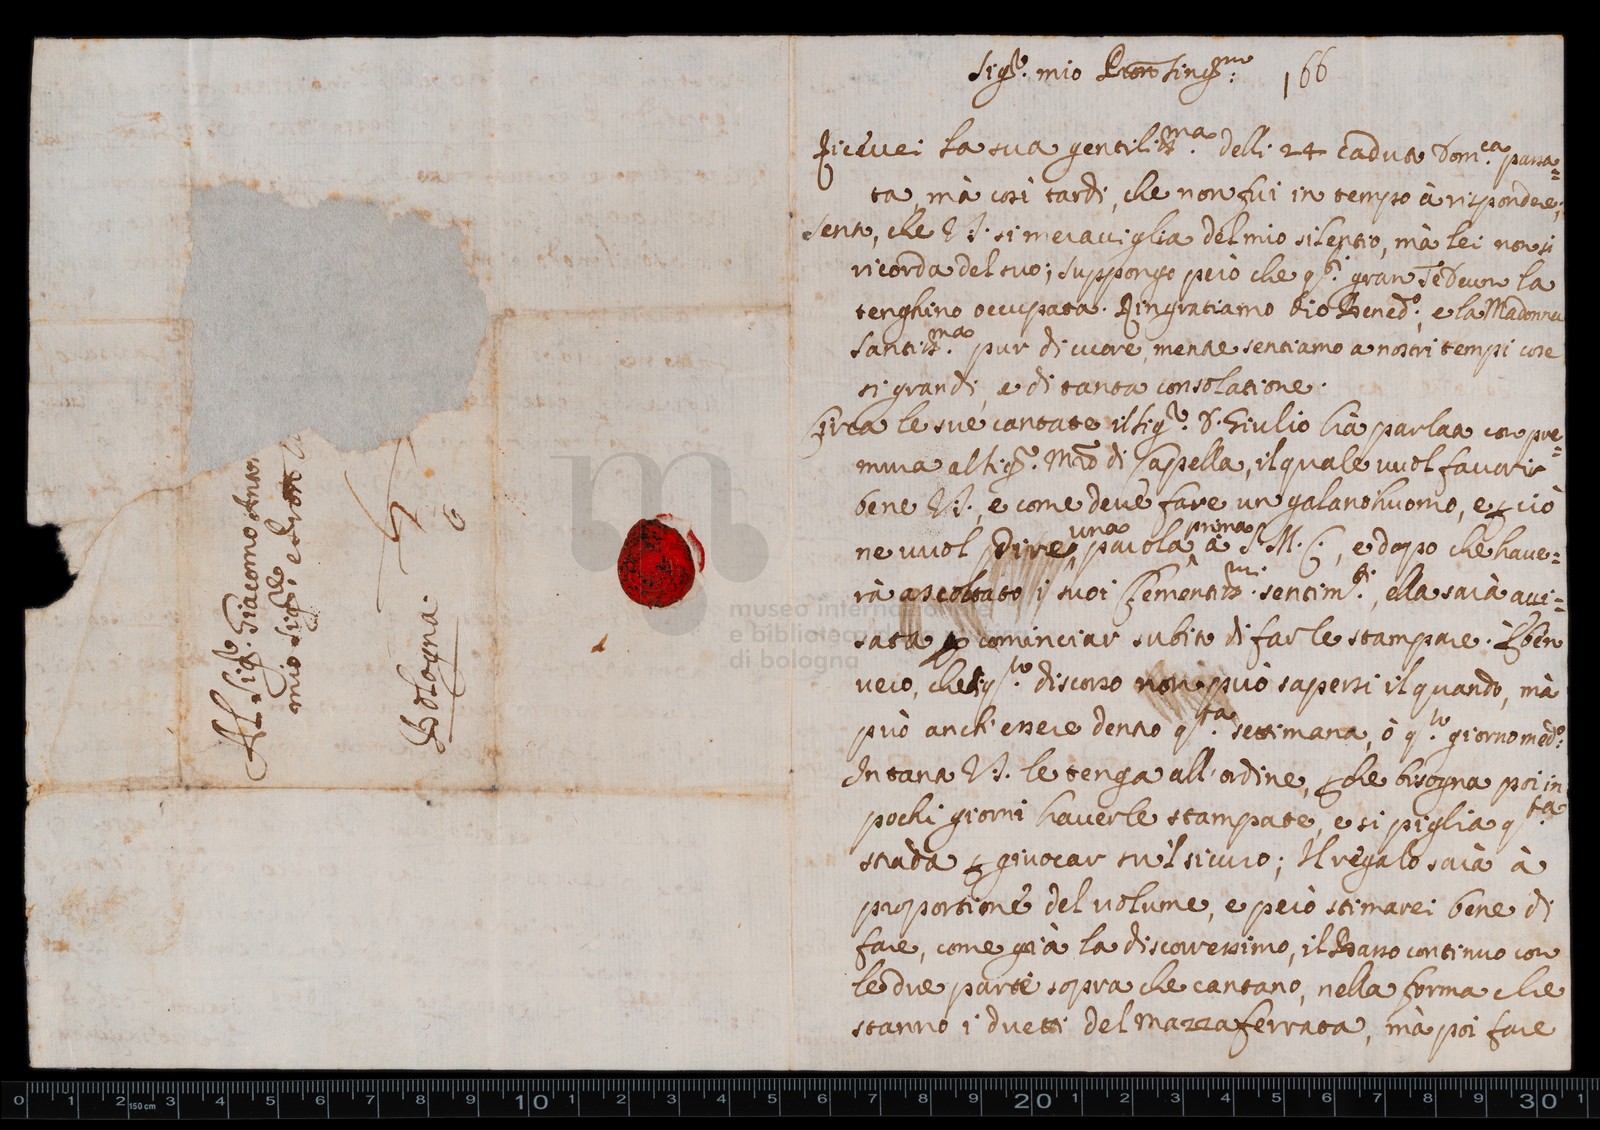 Al Sig.re Giacomo Ant.
mio Sig.re e Pron
Bologna.
6
Sig.r mio Pron Sing.mo
166
Riceuei la sua gentiliss.ma delli 24 caduta Dom.ca passa=
ta, mà così tardi, che non fui in tempo à rispondere;
sento, che V.S. si merauiglia del mio silentio, mà lei non si
ricorda del suo; suppongo però che q.sti gran TeDeum la
tenghino occupata. Ringratiamo Dio Bened.o, e la Madonna
Santiss.ma pur di cuore, mentre sentiamo a nostri tempi cose
si grandi, e di tanta consolatione.
Circa le sue cantate il Sig.r D. Giulio hà parlato con pre=
mura al Sig.r M.ro di Capella, il quale uuol fauorir
bene V.S., e come deue fare un galanthuomo, e ꝑ ciò
ne uuol dire, una parola prima à S.M.C., e dopo che haue=
rà ascoltato i suoi Clementiss.mi sentim.ti, ella sarà aui=
sata ꝑ cominciar subito di farle stampare. È ben
uero, che di q.to discorso non può sapersi il quando, mà
può anch'essere dentro q.ta settimana, ò q.to giorno med.o:
Intanto V.S. le tenga all'ordine, ꝑche bisogna poi in
pochi giorni hauerle stampate, e si piglia q.ta
strada ꝑ giuocar su'l sicuro; Il regalo sarà à
proportione del uolume, e però stimarei bene di
fare, come già la discorressimo, il Basso continuo con
le due parti sopra che cantano, nella forma che
stanno i duetti del Mazzaferrata, mà poi fare
museo internazionale
e biblioteca della musica
di bologna
0 1 2 150 cm 3 4 5 6 7 8 9 10 1 2 3 4 5 6 7 8 9 20 1 2 3 4 5 6 7 8 9 30 1